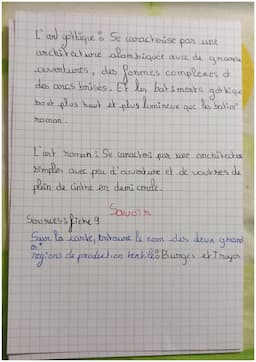 L'art gothique : Se caracterise par une
architecture alambiquée avec de grande
ouvertures, des formes complexes et
des arcs brisés. Et les batiments gotique
sont plus haut et plus lumineux que les batime
roman.
L'art roman : Se caracteri par une architecture
simples avec peu d'ouverture et de voutres de
plein de cintre en demi cercle.
Savoir
Sources : fiche 9
Sur la carte, entoure le nom des deux grand
régions de production textile : Burges et Troyes